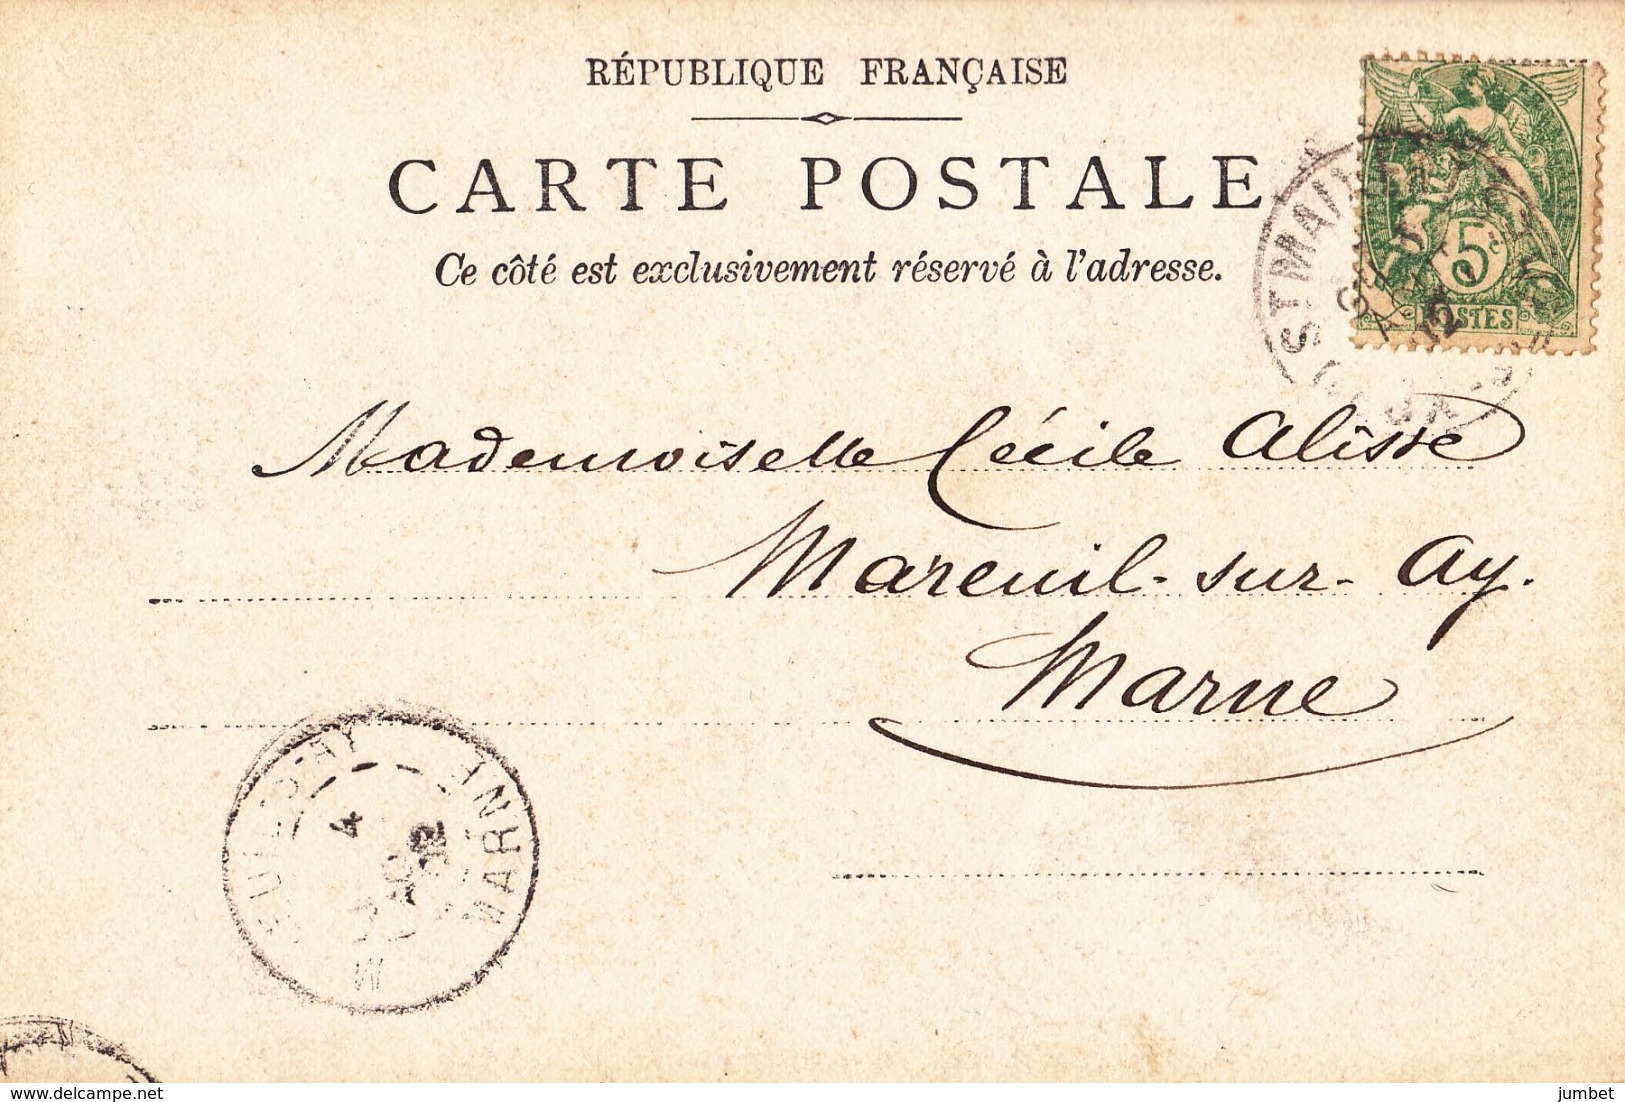 RÉPUBLIQUE FRANÇAISE
CARTE POSTALE
Ce côté est exclusivement réservé à l'adresse.
5c
POSTES
ST MAI
Mademoiselle Cécile Alisse
Mareuil-sur-Ay.
Marne
MARNE
4
delcampe.net
jumbet